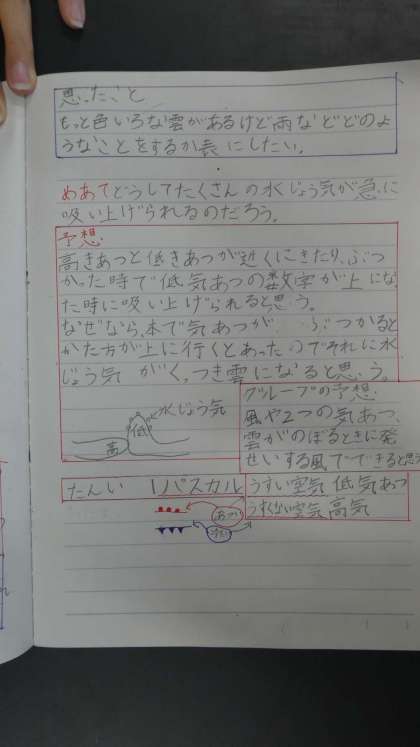 思ったこと
もっと色いろな雲があるけど雨などどのよ
うなことをするか表にしたい。
めあてどうしてたくさんの水じょう気が急に
吸い上げられるのだろう。
予想
高きあつと低きあつが近くにきたり、ぶつ
かった時で低気あつの数字が上にな
た時に吸い上げられると思う。
なぜなら、本で気あつが ぶつかると
かた方が上に行くとあったのでそれに水
じょう気がくっつき雲になると思う。
水じょう気
低
高
グループの予想
風や2つの気あつ、
雲がのぼるときに発
せいする風でできると思う
たんい 1パスカル
うすい空気 低気あつ
うすくない空気 高気
あつ